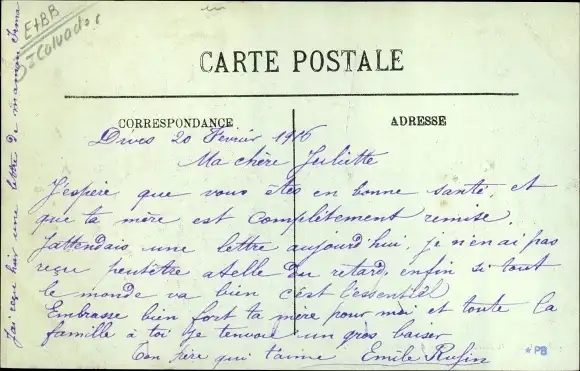 E+BB
= Calvados
CARTE POSTALE
CORRESPONDANCE
ADRESSE
Dives 20 Février 1916
Ma chère Juliette
J'espère que vous êtes en bonne santé, et
que ta mère est complètement remise.
J'attendais une lettre aujourd'hui, je n'en ai pas
reçu peutêtre atelle du retard, enfin si tout
le monde va bien c'est l'essentiel
Embrasse bien fort ta mère pour moi et toute la
famille à toi je tenvoie un gros baiser
Ton père qui t'aime Emile Rufin
J'ai reçu hier une lettre de maman Irma
* PB